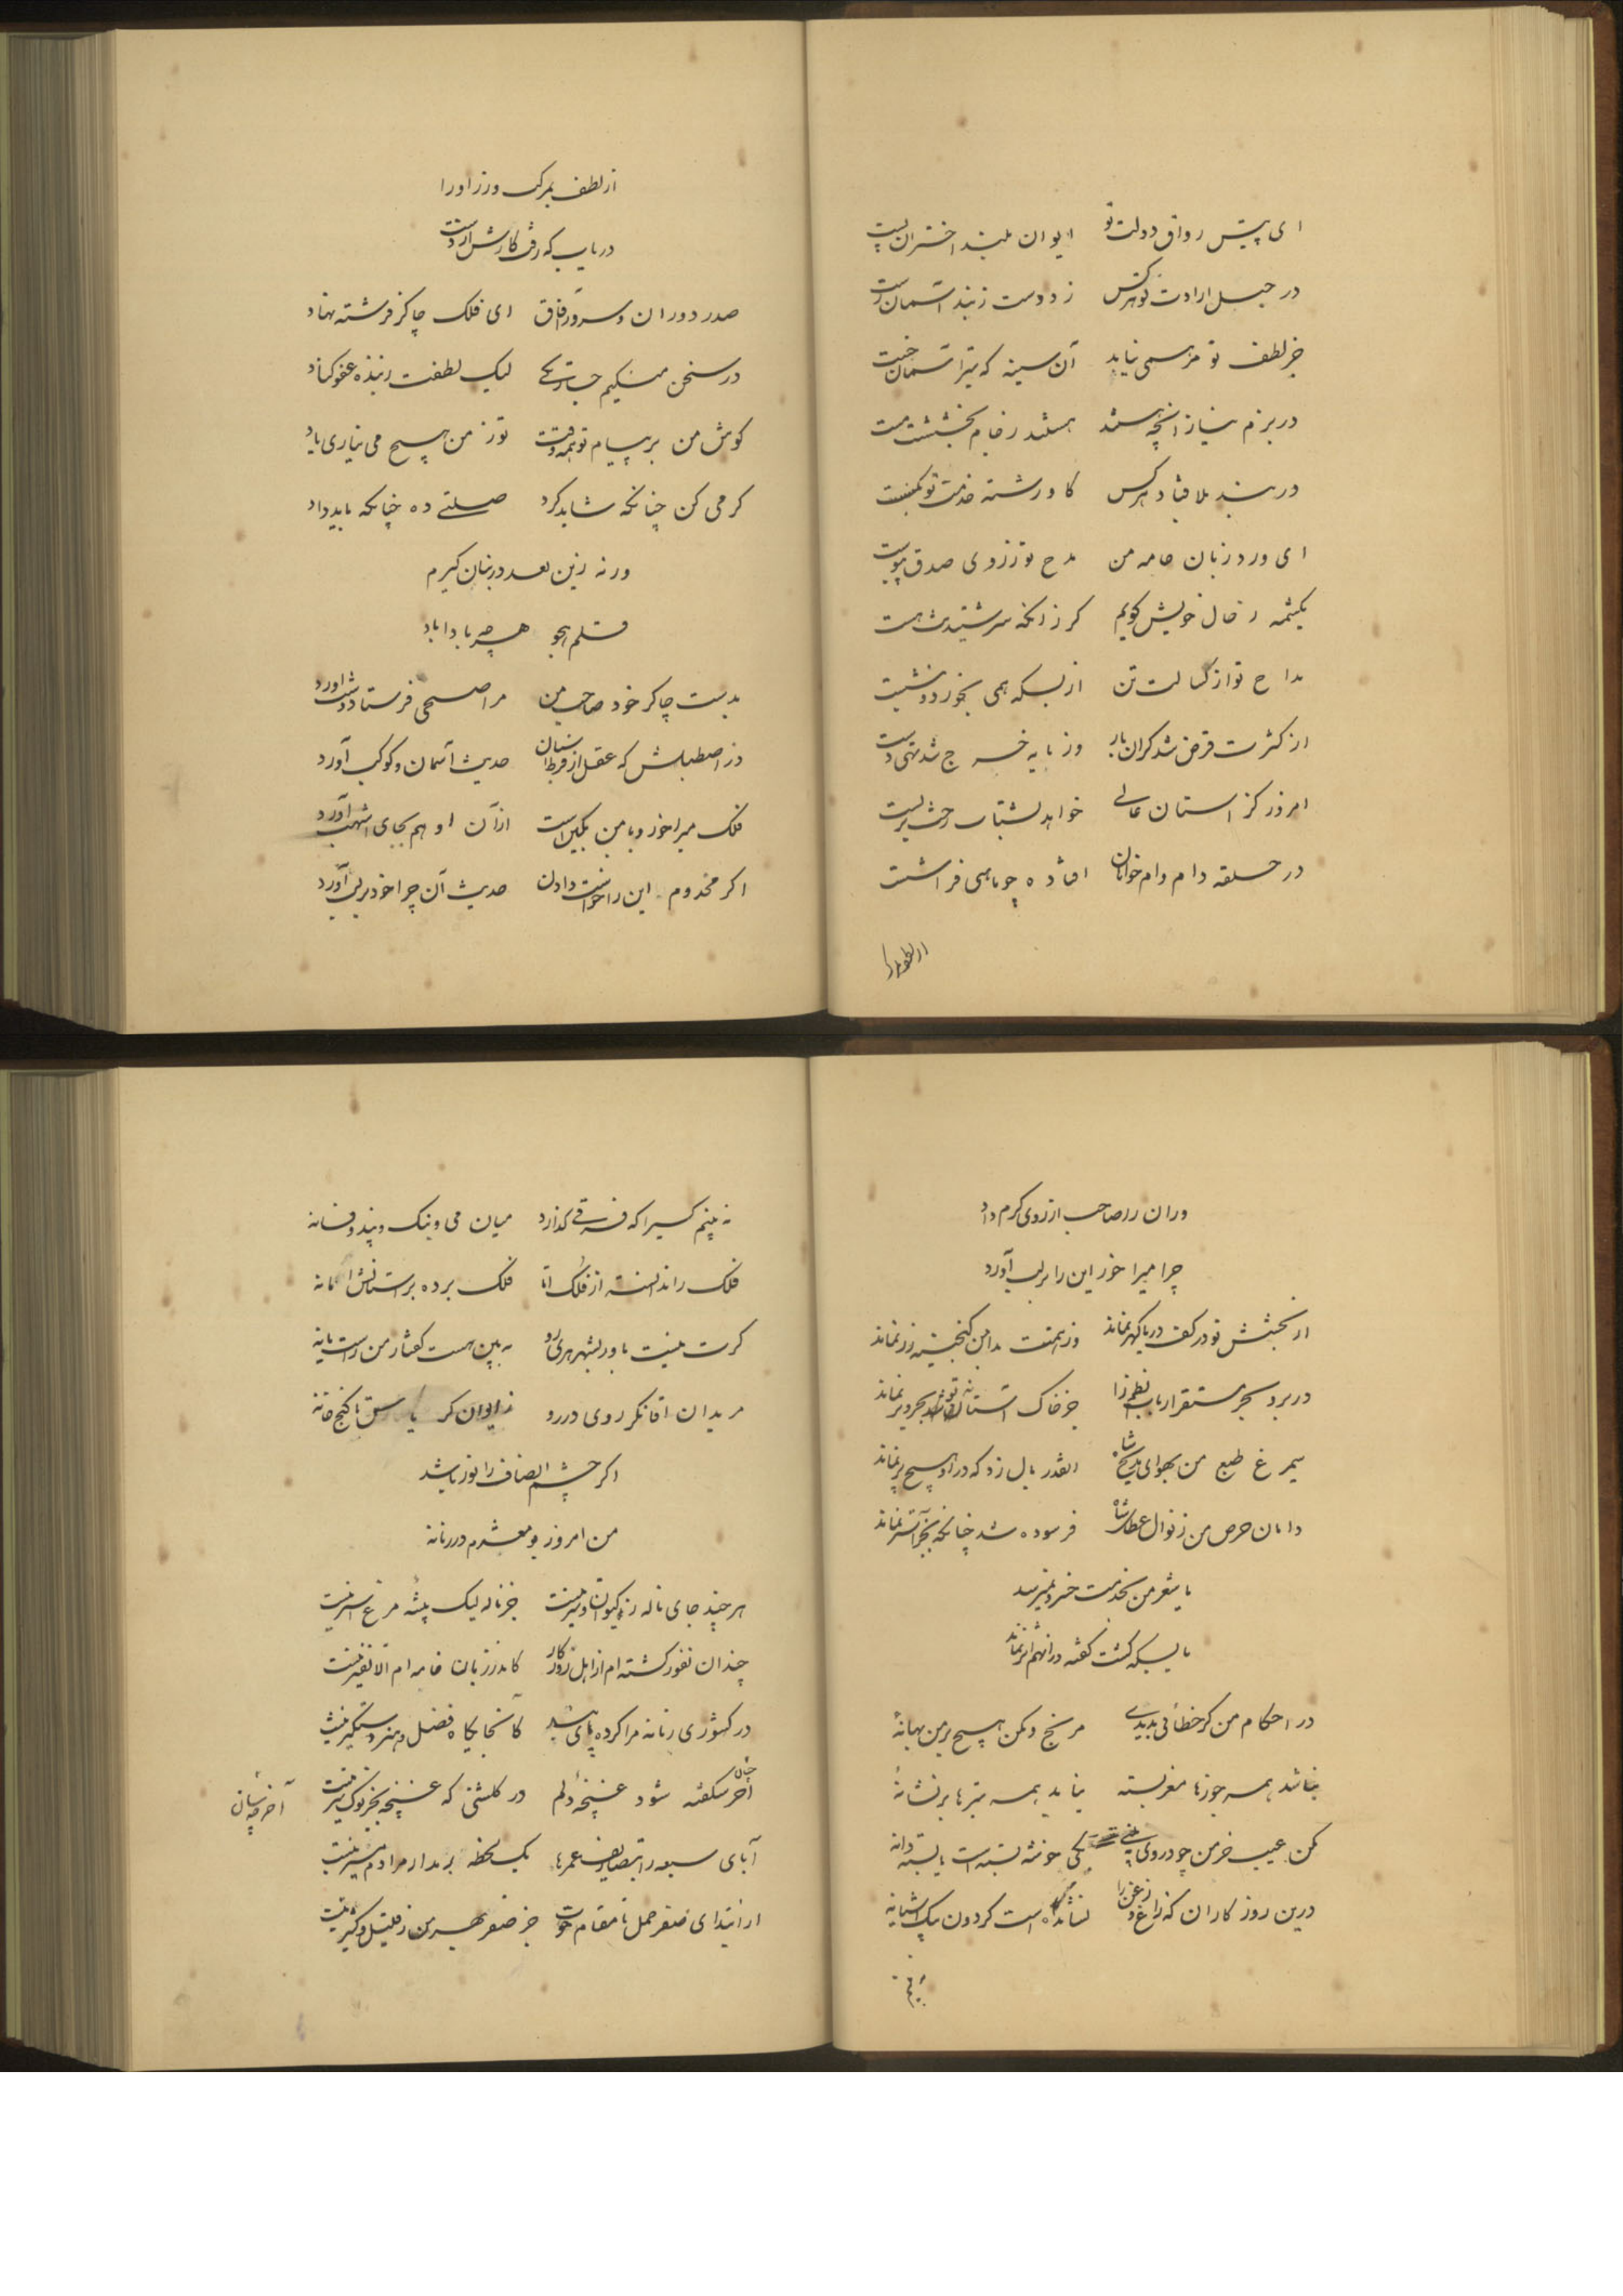 ای پیش رواق دولت تو ایوان بلند اختران پست
در حبل ارادت تو هرکس زد دست زبند آسمان رست
جز لطف تو مرهمی نیابد آن سینه که تیر آسمان خست
در بزم نیاز آنچه هستند هستند ز جام بخششت مست
در بند بلا فتاد هرکس کاو رشته خدمت تو بگسست
ای ورد زبان خامه من مدح تو ز روی صدق پیوست
یکشمه ز حال خویش گویم گر زانکه سر شنیدنت هست
مداح تو از کسالت تن از بسکه همی بخورد و بنشست
از کثرت قرض شد گران بار وز مایه خرج شد تهی دست
امروز کز آستان عالی خواهد بشتاب رخت بربست
در حلقه دام وام خواهان افتاده چو ماهی در شست
از لطف
از لطف بمرگ ورز او را
دریاب که رفت کارش از دست
صدر دوران و سرور آفاق ای فلک چاکر فرشته نهاد
در سخن میکنم جسارتکی لیک لطفت ز بنده عفو کناد
گوش من بر پیام تو همه وقت تو ز من هیچ می نیاری یاد
کرمی کن چنانکه شاید کرد صلتی ده چنانکه باید داد
ورنه زین بعد در بنان گیرم
قلم هجو هرچه بادا باد
بدست چاکر خود صاحب من مرا صبحی فرستاد و شب آورد
در اصطبلش که عقل از فرط نسیان حدیث آسمان و کوکب آورد
فلک میراخور و با من بکین است از آن او هم بجای اشهب آورد
اگر مخدوم این را خواست دادن حدیث آن چرا خود بر لب آورد
وران را صاحب از روی کرم داد
چرا میراخور این را بر لب آورد
از بخشش تو در کف دریا گهر نماند وز همتت بدامن گنجینه زر نماند
در برد بحر مستقر ارباب نظم را جز خاک آستانه تو بحر و بر نماند
سیمرغ طبع من بهوای مدیح شاه آنقدر بال زد که در او هیچ پر نماند
دامان حرص من ز نوال عطای شاه فرسوده شد چنانکه بجز آستر نماند
یا شعر من بخدمت خسرو نمیرسد
یا بسکه گشت گفته در آنهم اثر نماند
در احکام من گر خطائی بدیدی مرنج و مکن هیچ بر من بهانه
نباشد همه جوزها مغز بسته نیاید همه تیرها بر نشانه
مکن عیب خرمن چو دروی یکی خوشه بسته است یا بسته دانه
درین روزگاران که زاغ و زغن را نشانده است گردون بیک آشیانه
نه بینم
نه بینم کسیرا که فرقی گذارد میان می و بنگ و پند و فسانه
فلک را ندانسته از فلک اما فلک برده بر آستانش امانه
گرت نیست باور بشهر هری رو ببین هست گفتار من راست یا نه
مریدان آقا نگر روی در رو ز ایوان گر تا کنج خانه
اگر چشم انصاف را نور باشد
من امروز بومعشرم در زمانه
هر چند جای ناله ز کیوان و تیر نیست جز ناله لیک پیشه مرغ اسیر نیست
چندان نفور گشته ام از اهل روزگار کاندر زبان خامه ام الا نفیر نیست
در کشوری زمانه مرا کرده پای بند کانجا یکاه فضل و هنر دستگیر نیست
آخر چسان شگفته شود غنچه دلم در گلشنی که غنچه بجز نوک تیر نیست
آخر چسان
آبای سبعه را بتصاریف عمرها یک لحظه بر مدار مرادم مسیر نیست
از ابتدای صفر حمل تا مقام حوت جز صفر بهر من ز قلیل و کثیر نیست